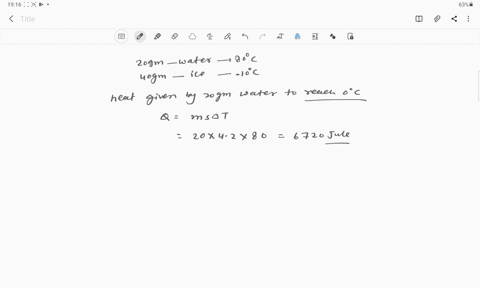 19:16
63%
Title
20gm — water → 80°C
40gm — ice — -10°C
Heat given by 20gm water to reach 0°C
Q = msΔT
= 20 × 4.2 × 80 = 6720 Jule